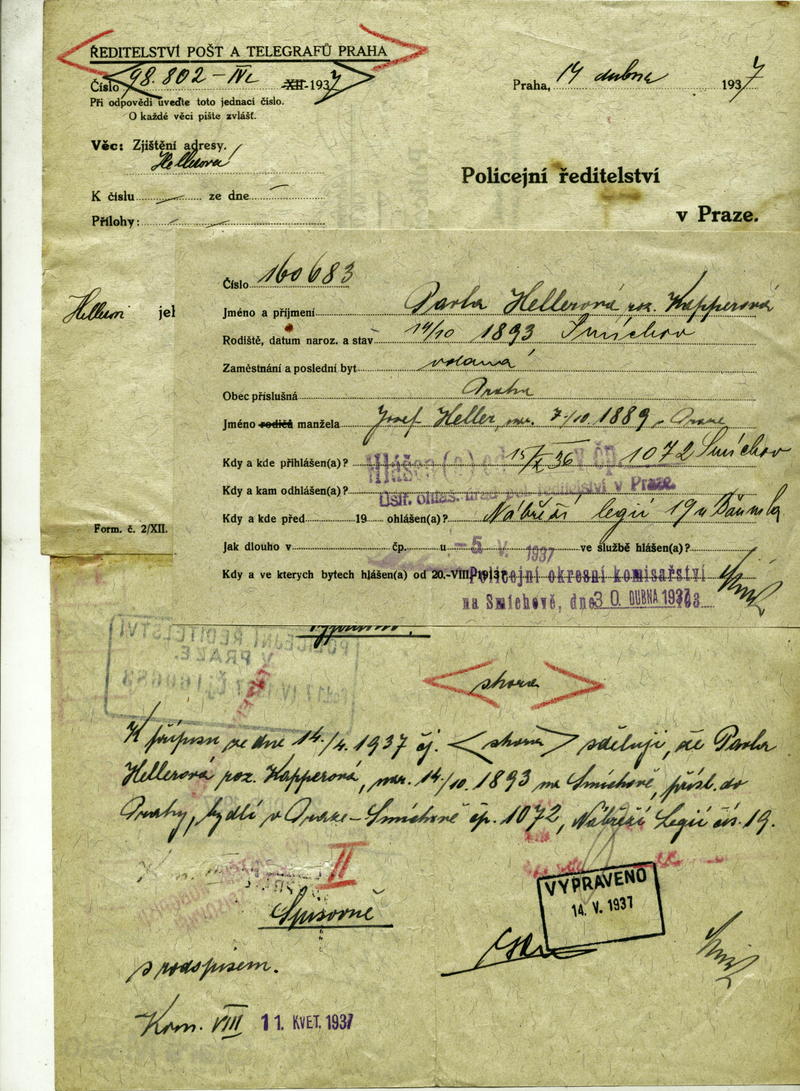 ŘEDITELSTVÍ POŠT A TELEGRAFŮ PRAHA
Číslo 98.802-IVc XII-1937
Při odpovědi uveďte toto jednací číslo.
O každé věci pište zvlášť.
Praha, 14 dubna 1937
Věc: Zjištění adresy.
Hellerová
Policejní ředitelství
v Praze.
K číslu ze dne
Přílohy:
Číslo 160683
Jméno a příjmení Pavla Hellerová roz. Kapperová
Rodiště, datum naroz. a stav 14/10 1893 Smíchov
Zaměstnání a poslední byt vdaná
Obec příslušná Praha
Jméno rodičů manžela Josef Heller, nar. 7./10. 1889 v Praze
Kdy a kde přihlášen(a)? 15/X 36 1072 Smíchov
Hlášen(a) v čp.
Kdy a kam odhlášen(a)?
Ústř. ohlaš. úřad pol. ředitelství v Praze.
Kdy a kde před 19 ohlášen(a)? Nábřeží legií 19
Jak dlouho v čp. u ve službě hlášen(a)?
-5. V. 1937
Kdy a ve kterých bytech hlášen(a) od 20.-VIII.
Policejní okresní komisařství
na Smíchově, dne 30. DUBNA 1937
Form. č. 2/XII.
POLICEJNÍ ŘEDITELSTVÍ
V PRAZE.
17 IV 1937 Čj. 160683
shora
K přípisu ze dne 14./4. 1937 čj. <shora> sděluji, že Pavla
Hellerová roz. Kapperová, nar. 14./10. 1893 na Smíchově, přísl. do
Prahy, bydlí v Praze-Smíchově čp. 1072, Nábřeží Legií čís. 19.
II
Spisovně
VYPRAVENO
14. V. 1937
s podpisem.
Kom. VIII 11. KVĚT. 1937